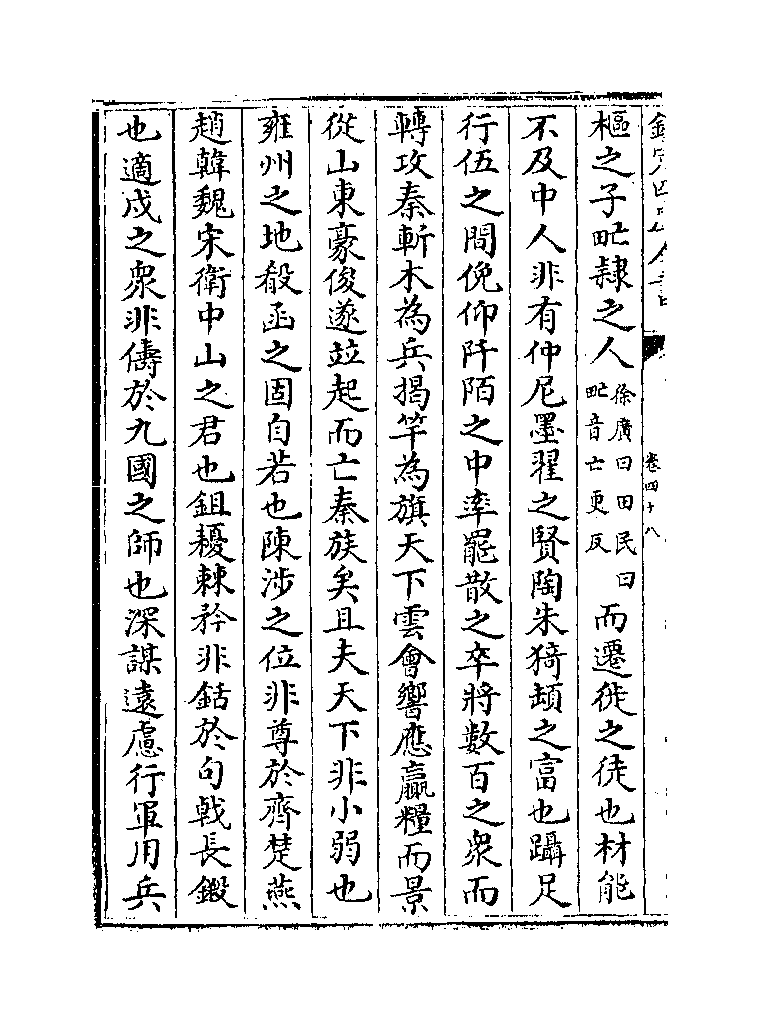 欽定四庫全書 卷四十八
樞之子甿隸之人徐廣曰田民曰甿音亡更反而遷徙之徒也材能
不及中人非有仲尼墨翟之賢陶朱猗頓之富也躡足
行伍之間俛仰阡陌之中率罷散之卒將數百之衆而
轉攻秦斬木為兵揭竿為旗天下雲會響應贏糧而景
從山東豪俊遂竝起而亡秦族矣且夫天下非小弱也
雍州之地殽函之固自若也陳涉之位非尊於齊楚燕
趙韓魏宋衛中山之君也鉏耰棘矜非銛於句戟長鎩
也適戍之衆非儔於九國之師也深謀遠慮行軍用兵